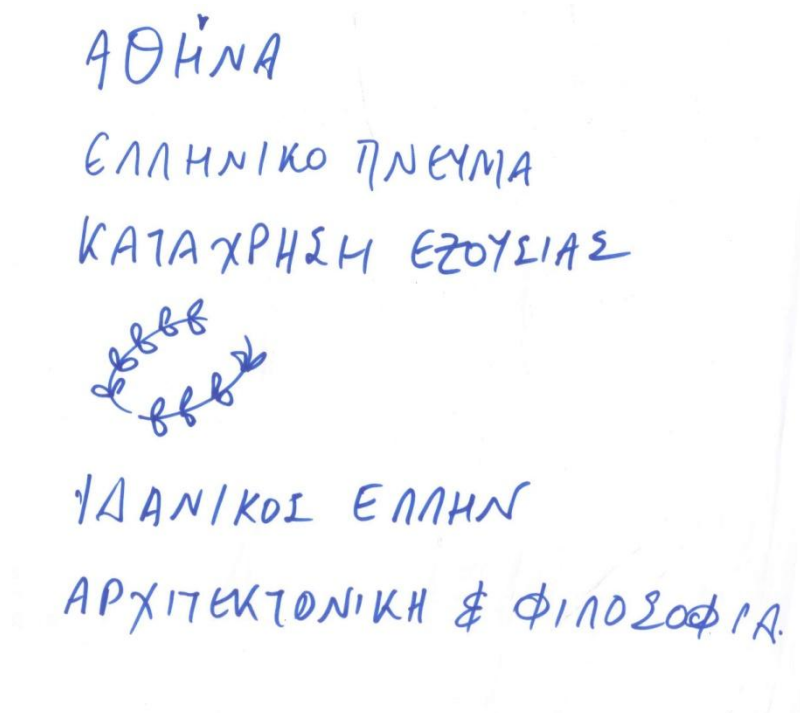 ΑΘΗΝΑ
ΕΛΛΗΝΙΚΟ ΠΝΕΥΜΑ
ΚΑΤΑΧΡΗΣΗ ΕΞΟΥΣΙΑΣ
ΙΔΑΝΙΚΟΣ ΕΛΛΗΝ
ΑΡΧΙΤΕΚΤΟΝΙΚΗ & ΦΙΛΟΣΟΦΙΑ.